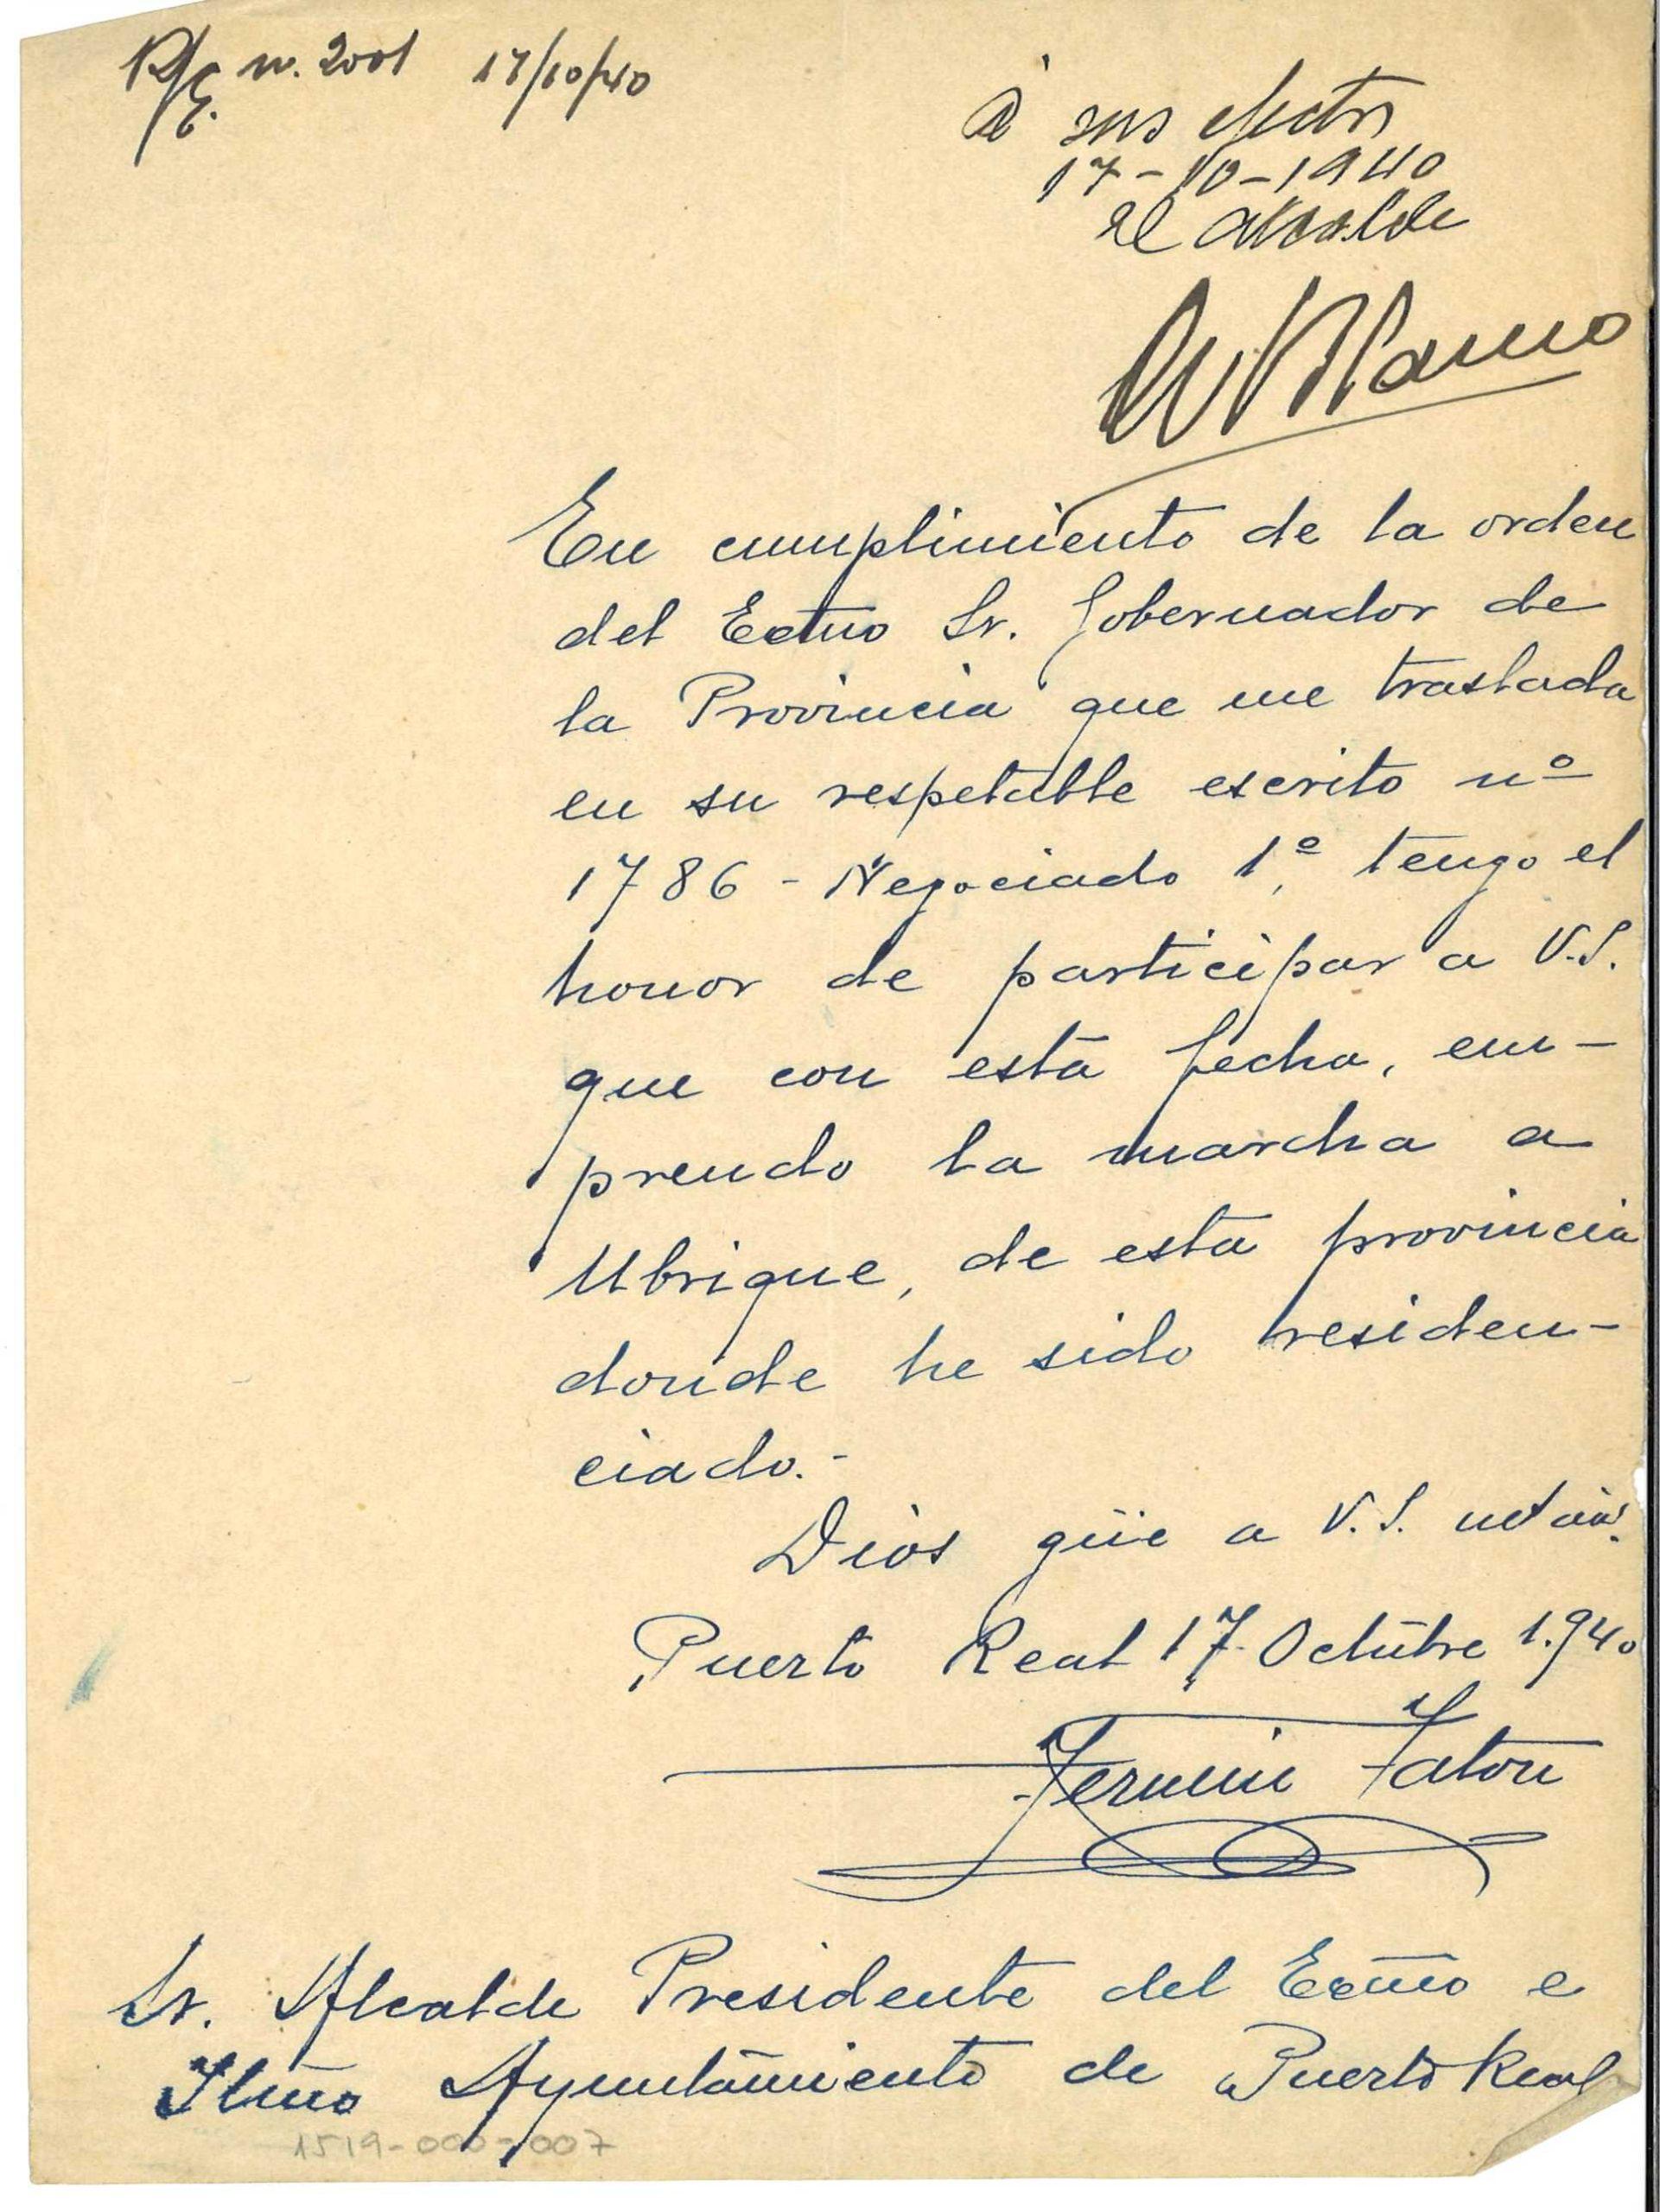 R/E. n. 2001 17/10/40
A sus efectos
17-10-1940
El Alcalde
En cumplimiento de la orden
del Exmo Sr. Gobernador de
la Provincia que me traslada
en su respetable escrito nº
1786 - Negociado 1º, tengo el
honor de participar a V.S.
que con esta fecha, em-
prendo la marcha a
Ubrique, de esta provincia
donde he sido residen-
ciado.-
Dios güe a V.S. m
Puerto Real 17 Octubre 1.940
Fermin Faton
Sr. Alcalde Presidente del Ecmo e
Iltmo Ayuntamiento de Puerto Real
1519-000-007